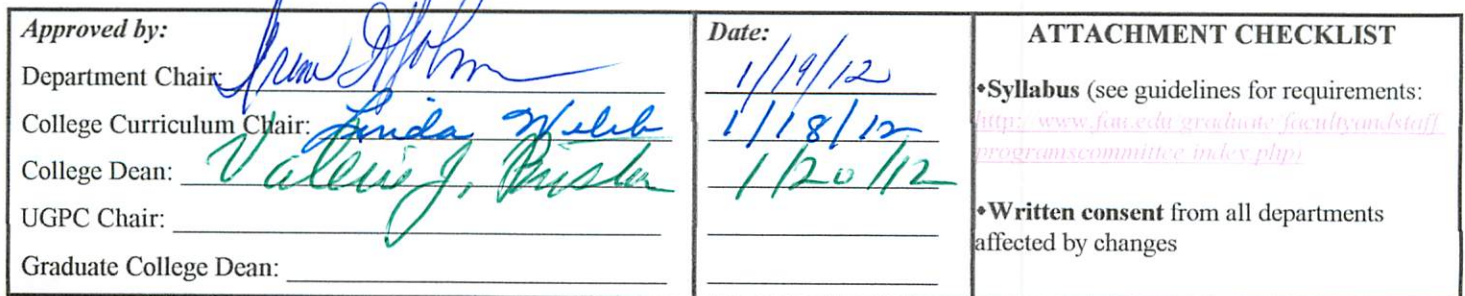 Approved by:
Department Chair:
College Curriculum Chair: Linda Webb
College Dean: Valerie J. Bristor
UGPC Chair:
Graduate College Dean:
Date:
1/19/12
1/18/12
1/20/12
ATTACHMENT CHECKLIST
•Syllabus (see guidelines for requirements:
http://www.fau.edu/graduate/facultyandstaff/
programscommittee/index.php)
•Written consent from all departments
affected by changes